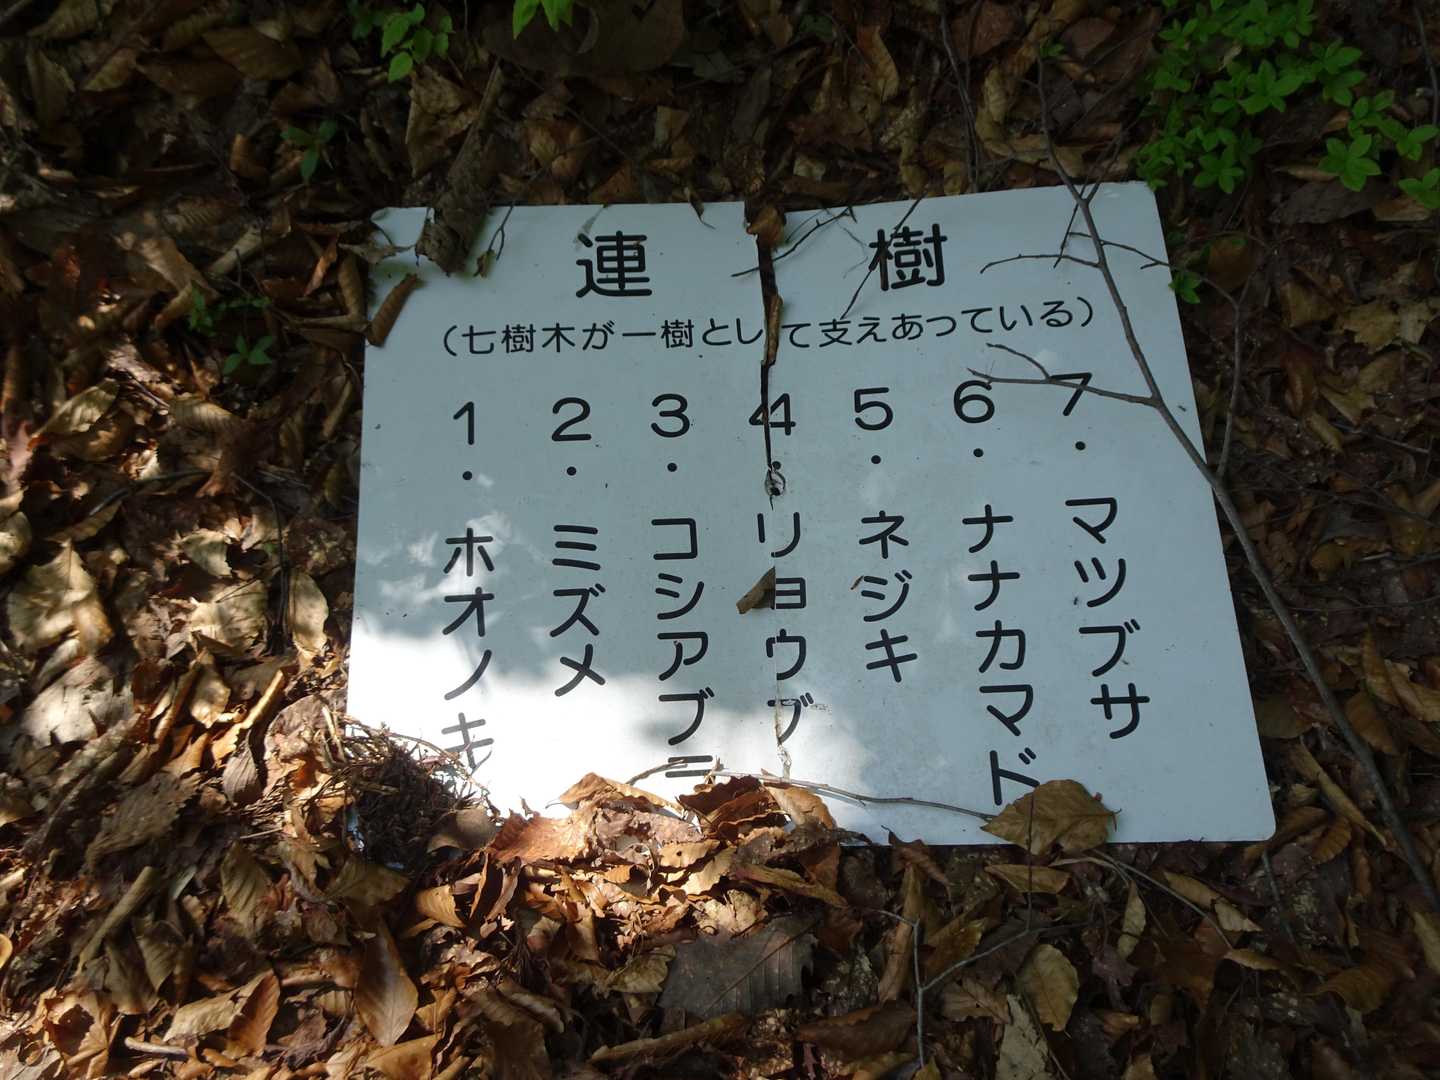 連樹
（七樹木が一樹として支えあっている）
1・ホオノキ
2・ミズメ
3・コシアブラ
4・リョウブ
5・ネジキ
6・ナナカマド
7・マツブサ